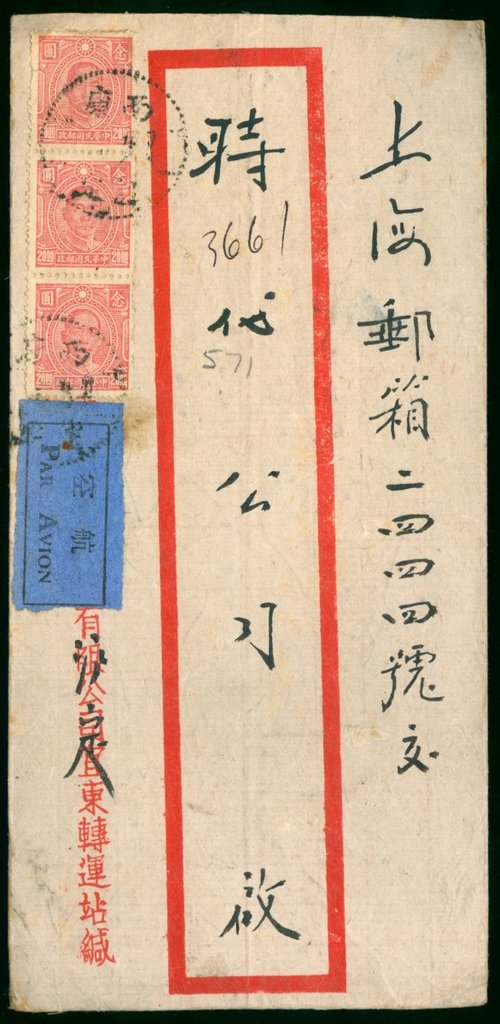 上海郵箱二四四四號交
時代公司 啟
3661
571
念圓
中華民國郵政
20
念圓
中華民國郵政
20
念圓
中華民國郵政
20
航空
PAR AVION
有限公司宜東轉運站緘